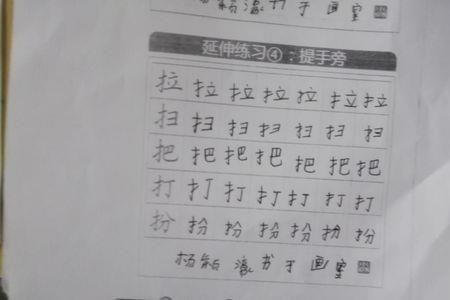 于画室
延伸练习④：提手旁
拉拉拉拉拉拉拉
扫扫扫扫扫扫扫
把把把把把把把
打打打打打打打
扮扮扮扮扮扮扮
杨 书于画室